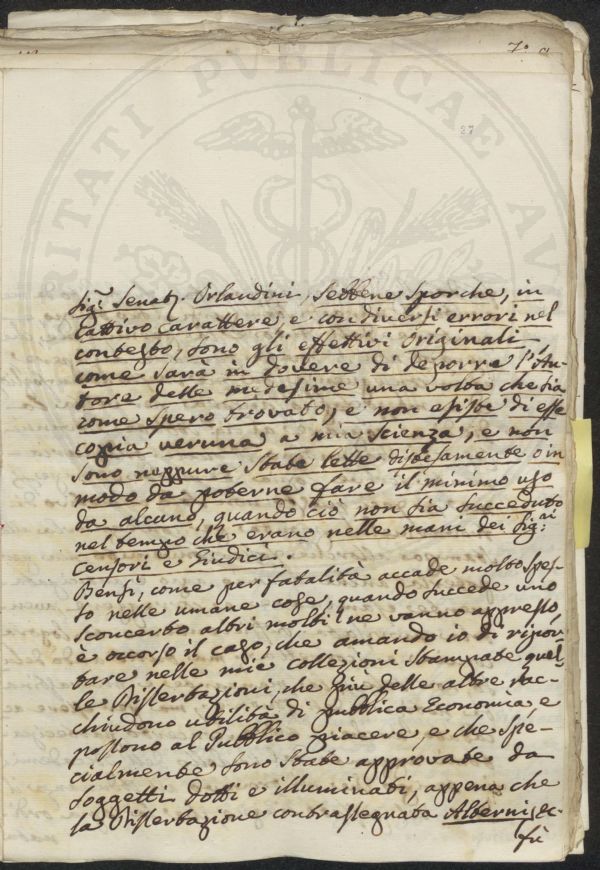 7.° a
27
PUBLICAE
Sig.r Senat.r Orlandini, sebbene sporche, in
cattivo carattere, e con diversi errori nel
contesto, sono gli effettivi originali,
come sarà in dovere di deporre l'Au-
tore delle medesime una volta che sia
come spero trovato, e non esiste di esse
copia veruna a mia scienza, e non
sono neppure state lette distesamente o in
modo da poterne fare il minimo uso
da alcuno, quando ciò non sia succeduto
nel tempo che erano nelle mani dei Sig.ri
Censori e Giudici.
Bensì, come per fatalità accade molto spes-
so nelle umane cose, quando succede uno
sconcerto altri molti ne vanno appresso,
è occorso il caso, che amando io di ripor-
tare nelle mie collezioni stampate quel-
le Dissertazioni, che più delle altre rac-
chiudono utilità di pubblica Economia, e
possono al Pubblico piacere, e che spe-
cialmente sono state approvate da
soggetti dotti e illuminati, appena che
la Dissertazione contrassegnata Alternis &c.
fu